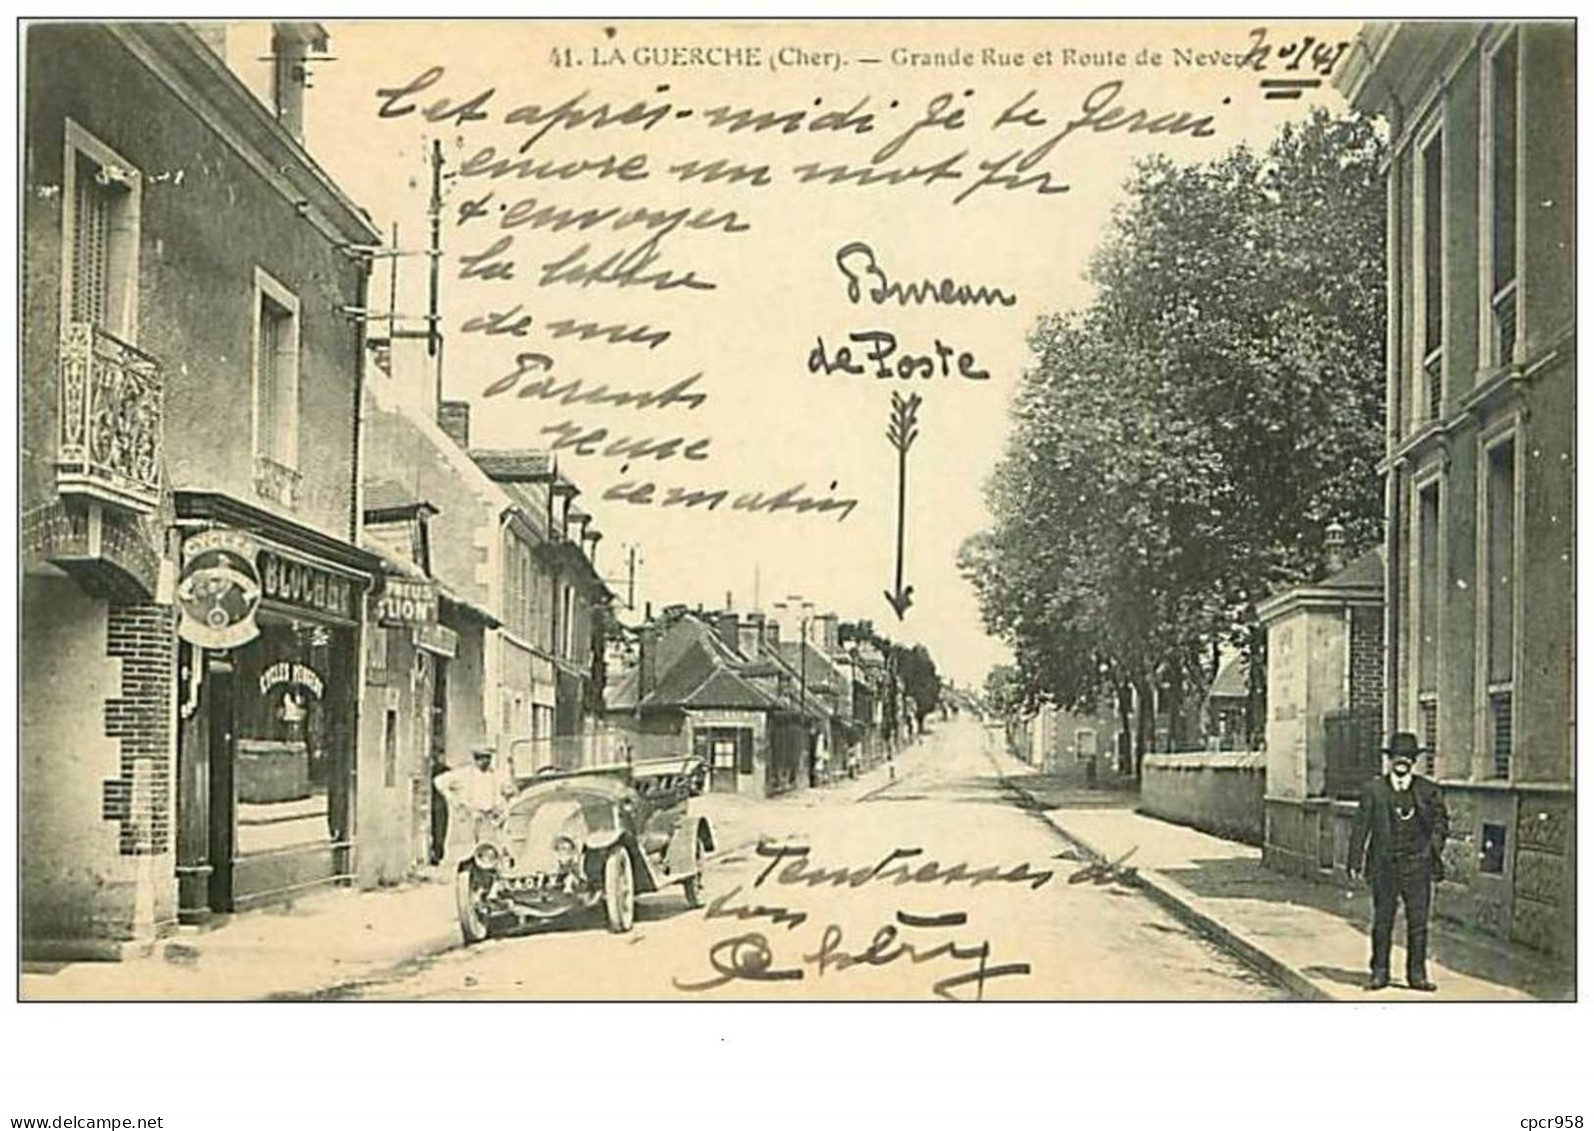 41. LA GUERCHE (Cher). — Grande Rue et Route de Nevers
No 141
Cet après-midi je te ferai
encore un mot pr
t'envoyer
la lettre
de mes
Parents
reçue
ce matin
Bureau
de Poste
CYCLES
BLOUCHON
PNEUS
"LION"
CYCLES PEUGEOT
Tendresses de
ton
Chéry
www.delcampe.net
cpcr958